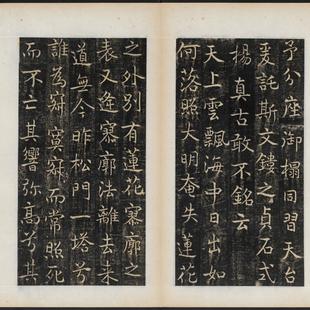 予分座御榻同習天台
爰託斯文鏤之貞石式
揚真古敢不銘云
天上雲飄海中日出如
何落照大明奄失蓮花
之外別有蓮花寥廓之
表又逢寥廓法離去來
道無今昨松門一塔兮
誰為寞寂而常照死
而不亡其響彌高兮其